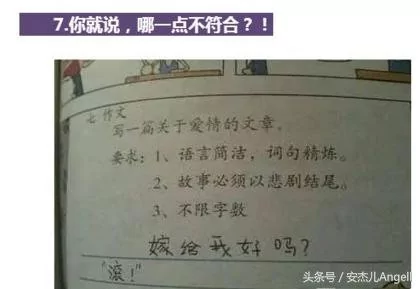 7.你就说，哪一点不符合？！
七 作文
写一篇关于爱情的文章。
要求：1、语言简洁，词句精炼。
2、故事必须以悲剧结尾。
3、不限字数
嫁给我好吗？
“滚！”
头条号／安杰儿Angell